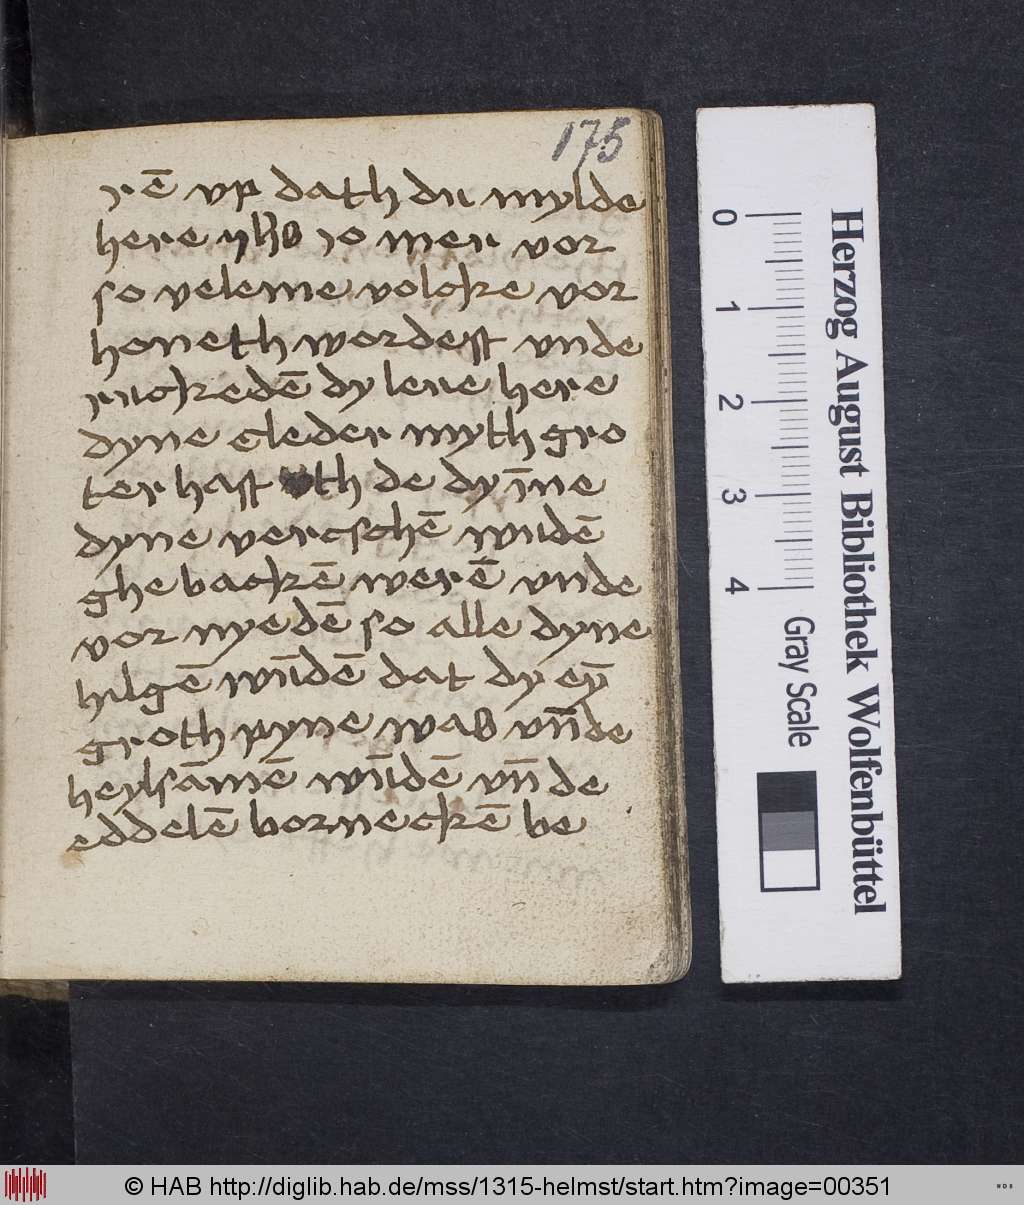 175
rē vp dath du mylde
here yhs̄ jo mer vor
so veleme volcke vor
honeth wordest vnde
ruckedē dy leue here
dyne cleder myth gro
ter hast vth de dy īne
dyne verschē wūdē
ghe backē werē vnde
vor nyedē so alle dyne
hilgē wūdē dat dy eȳ
groth pyne was vn̄de
heylsāmē wn̄dē vn̄ de
eddelē borneckē be
0
1
2
3
4
Gray Scale
Herzog August Bibliothek Wolfenbüttel
© HAB http://diglib.hab.de/mss/1315-helmst/start.htm?image=00351